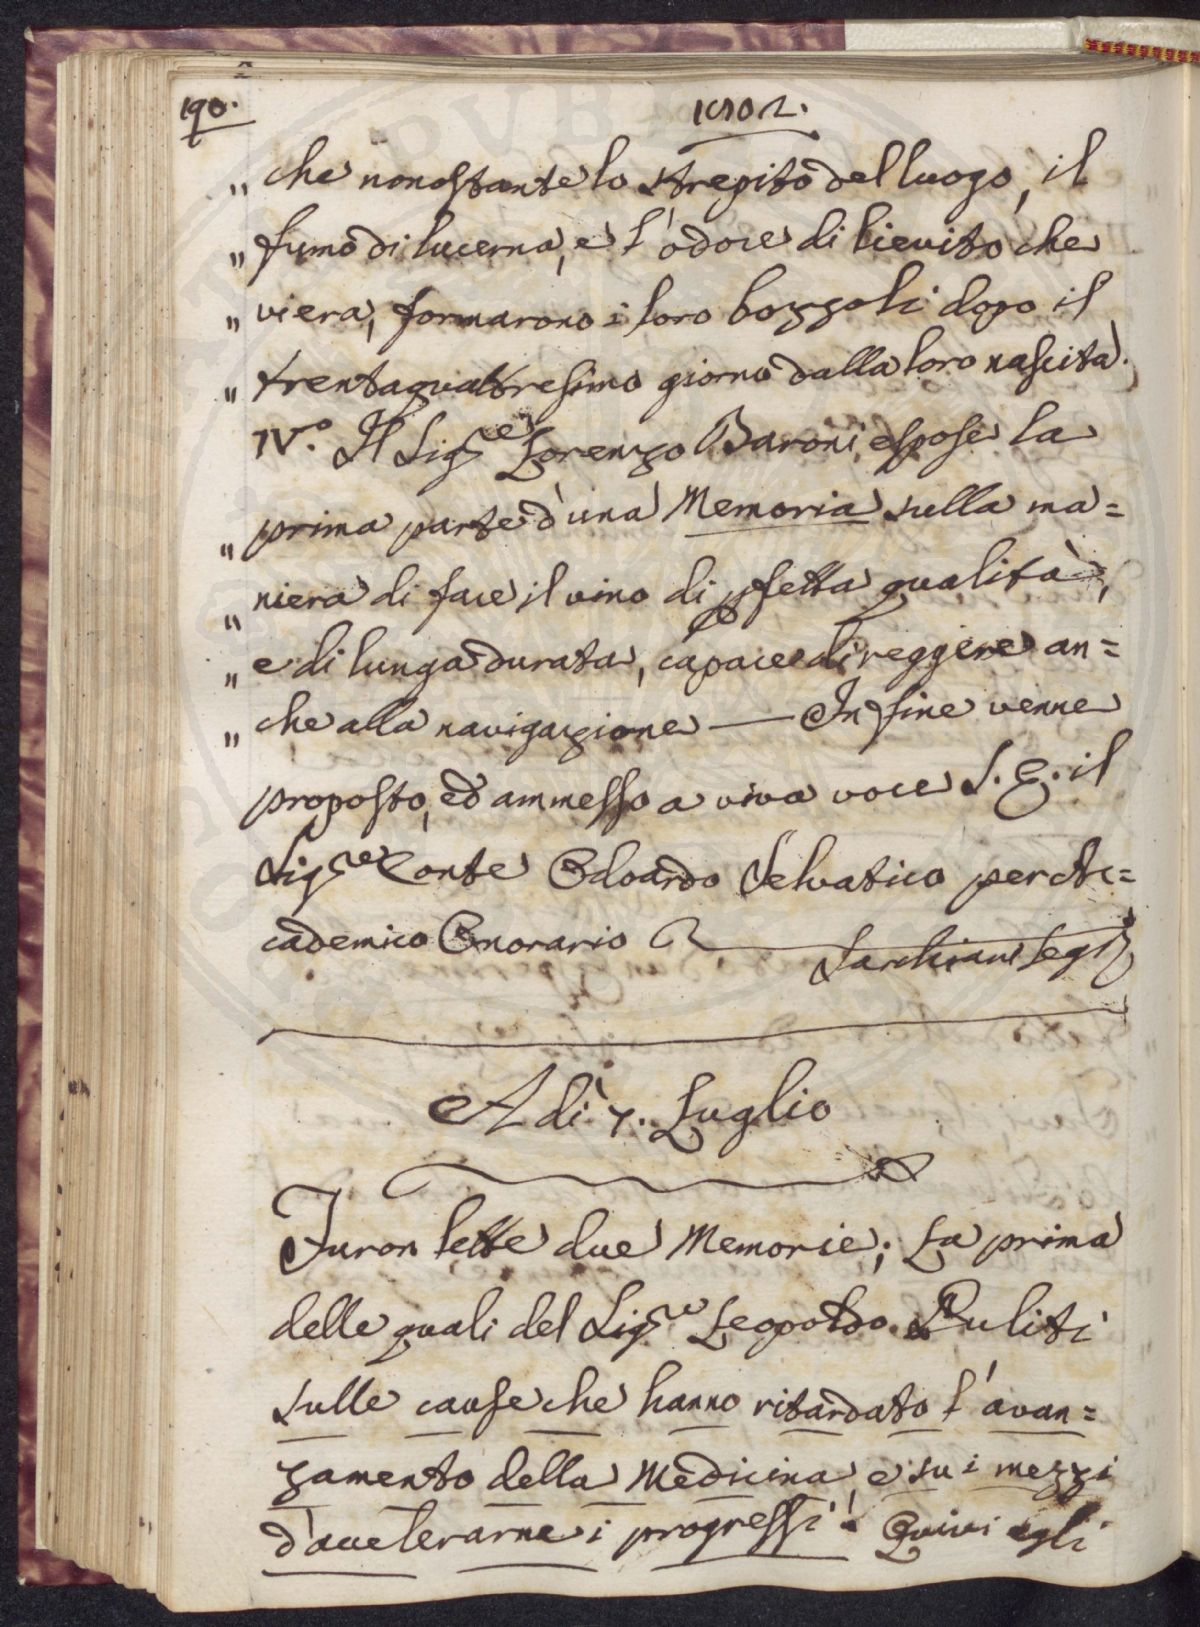 190.
1802.
„ che nonostante lo strepito del luogo, il
„ fumo di lucerna, e l'odore di lievito che
„ viera, formarono i loro bozzoli dopo il
„ trentaquattresimo giorno dalla loro nascita.
IV.° Il Sig.re Lorenzo Baroni, espose la
„ prima parte d'una Memoria sulla ma=
„ niera di fare il vino di pfetta qualità,
„ e di lunga durata, capace di reggere an=
„ che alla navigazione — In fine venne
proposto, ed ammesso a viva voce S. E. il
Sig.re Conte Odoardo Selvatico per Ac=
cademico Onorario
Sarchiani Seg.
A dì 7. Luglio
Furon lette due Memorie; La prima
delle quali del Sig.re Leopoldo Puliti
sulle cause che hanno ritardato l'avan=
zamento della Medicina, e sui mezzi
d'accelerarne i progressi. Quivi egli